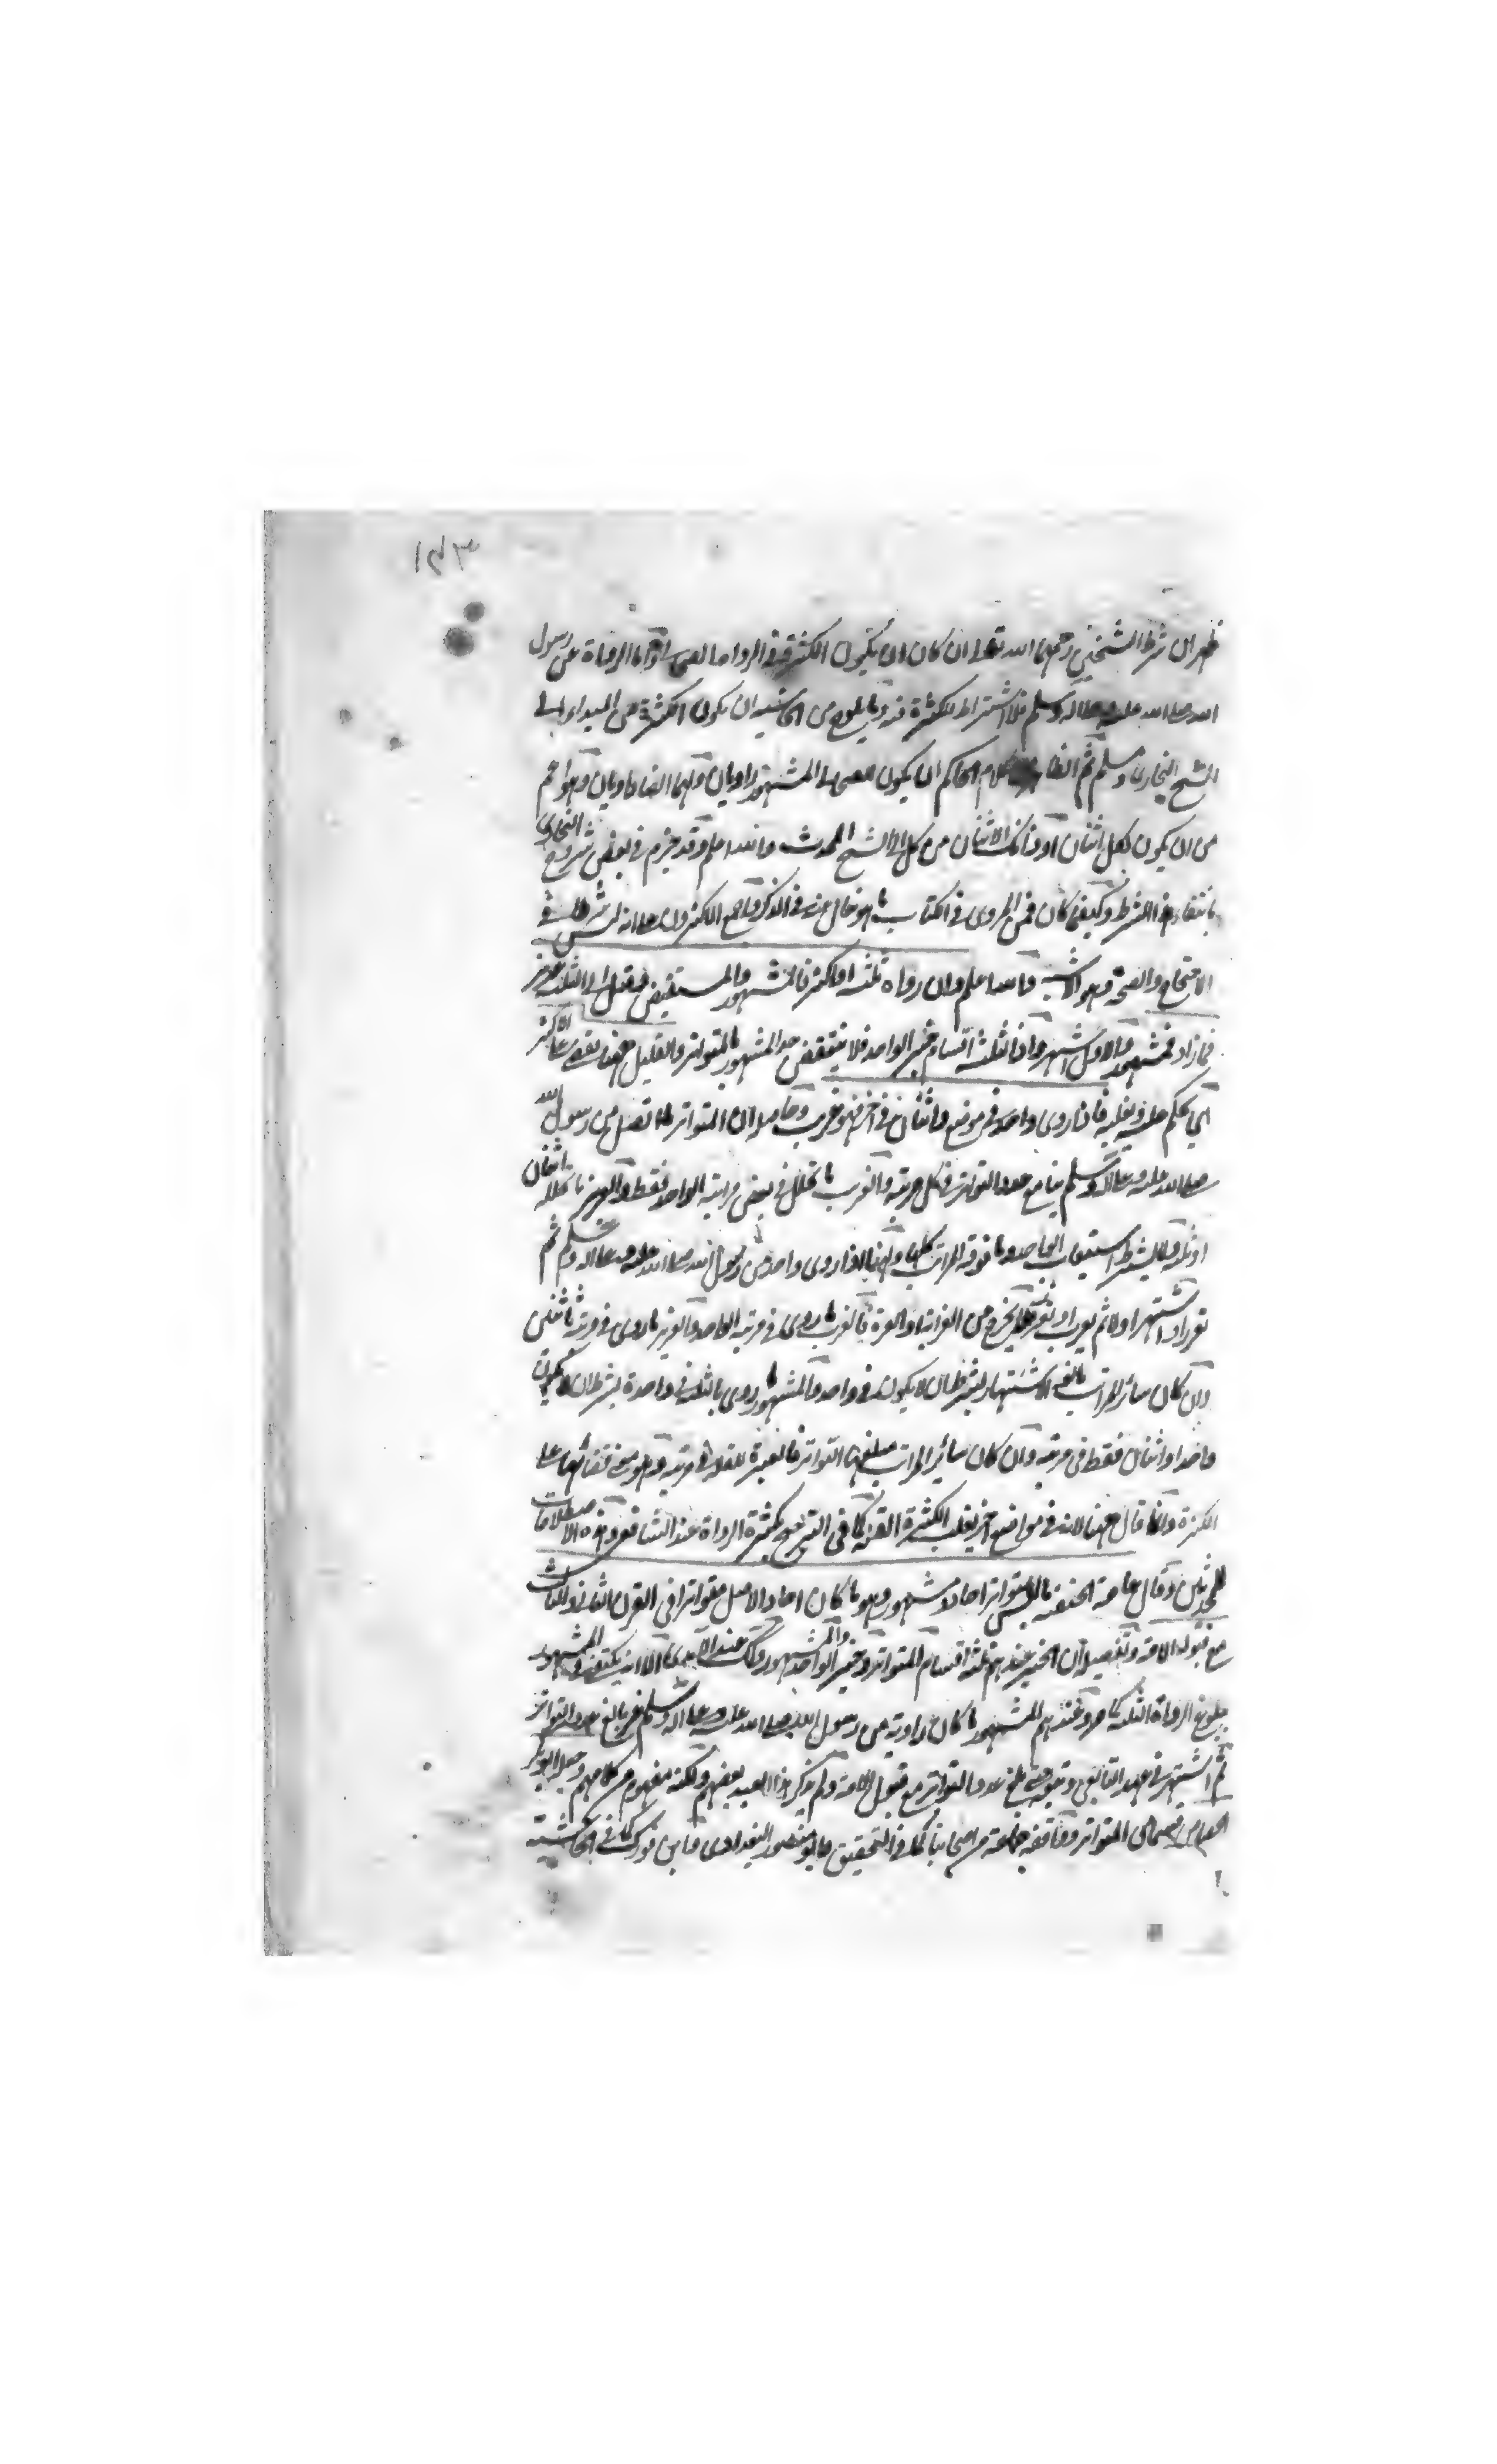 ١٤٣
ظهر ان شرط الشيخين رحمهما الله تعالى ان كان ان يكون الكثرة في الرواة الصحابي اما الرواة عن رسول
الله صلى الله عليه وعلى اله وسلم فلا اشتراط للكثرة فيه وما يلوح من الحاشية ان يكون الكثرة من المبدء الى
الشيخ البخاري ومسلم ثم الظاهر من كلام الحاكم ان يكون للصحابي المشهور راويان ولهما ايضا راويان وهو اعم
من ان يكون لكل اثنان او ذانك الاثنان من كل الى الشيخ المحدث والله اعلم وقد جزم في بعض شروح البخاري
بانتفاء هذا الشرط وكيفما كان فمن المروي في الكتاب ما هو خال عنه في الذكر واجمع الاكثرون على انه ليس شرطا في
الاحتجاج والصحة وهو الاشبه والله اعلم وان رواه ثلثة او اكثر فالمشهور والمستفيض وقيل الى الثلثة عزيز
فما زاد فمشهور والاول اشهر واذا ثلثة اقسام خبر الواحد فلا ينتقض حد المشهور بالمتواتر والقليل ههنا يقضى على الاكثر
اي يحكم عليه ويغلبه فاذا روى واحد في موضع واثنان في اخر فهو غريب وحاصله ان المتواتر ما اتصل من رسول الله
صلى الله عليه وعلى اله وسلم بنا مع عدد التواتر في كل مرتبة والغريب ما تخلل في بعض مراتبه الواحد فقط والعزيز ما تخلله اثنان
او ثلثة ولا يشترط استيعاب الواحد وما فوقه المراتب كلها ولهذا اذا روى واحد من رسول الله صلى الله عليه وعلى اله وسلم ثم
تفرد او اشتهر اولا ثم يخرج من الغرابة والعزة فالغريب ما روي في مرتبة الواحد والعزيز ما روي في مرتبة باثنين
وان كان سائر المراتب بالغة الاشتهار بشرط ان لا يكون في واحد والمشهور ما روي بالثلثة في واحدة بشرط ان لا يكون
واحد او اثنان فقط في مرتبة وان كان سائر المراتب مبلغها التواتر فالعبرة للقلة في مرتبة وهو معنى قضائها على
الكثرة وانما قال ههنا لانه في مواضع اخر يغلب الكثرة القلة كما في الترجيح بكثرة الرواة عند الشافعي وهذه الاصطلاحات
للمحدثين وقال عامة الحنفية ما ليس بمتواتر احاد ومشهور وهو ما كان احاد الاصل متواترا في القرن الثاني والثالث
مع قبول الامة وتفصيله ان الخبر عندهم ثلثة اقسام المتواتر وخبر الواحد والمشهور وكذلك عند الآمدي الا انه يكتفى في المشهور
بلوغ الرواة الثلثة كما مر وعندهم المشهور ما كان راويه من رسول الله صلى الله عليه وعلى اله وسلم غير بالغ عدد التواتر
ثم اشتهر في عهد التابعي وتبعه حتى بلغ عدد التواتر مع قبول الامة ولم يذكر هذا القيد بعضهم ولكنه مفهوم من كلامهم وجعله ابو بكر
الجصاص قسما من المتواتر ووافقه جماعة من اصحابنا كما في التحقيق وابو منصور البغدادي وابن فورك كما في الحاشية